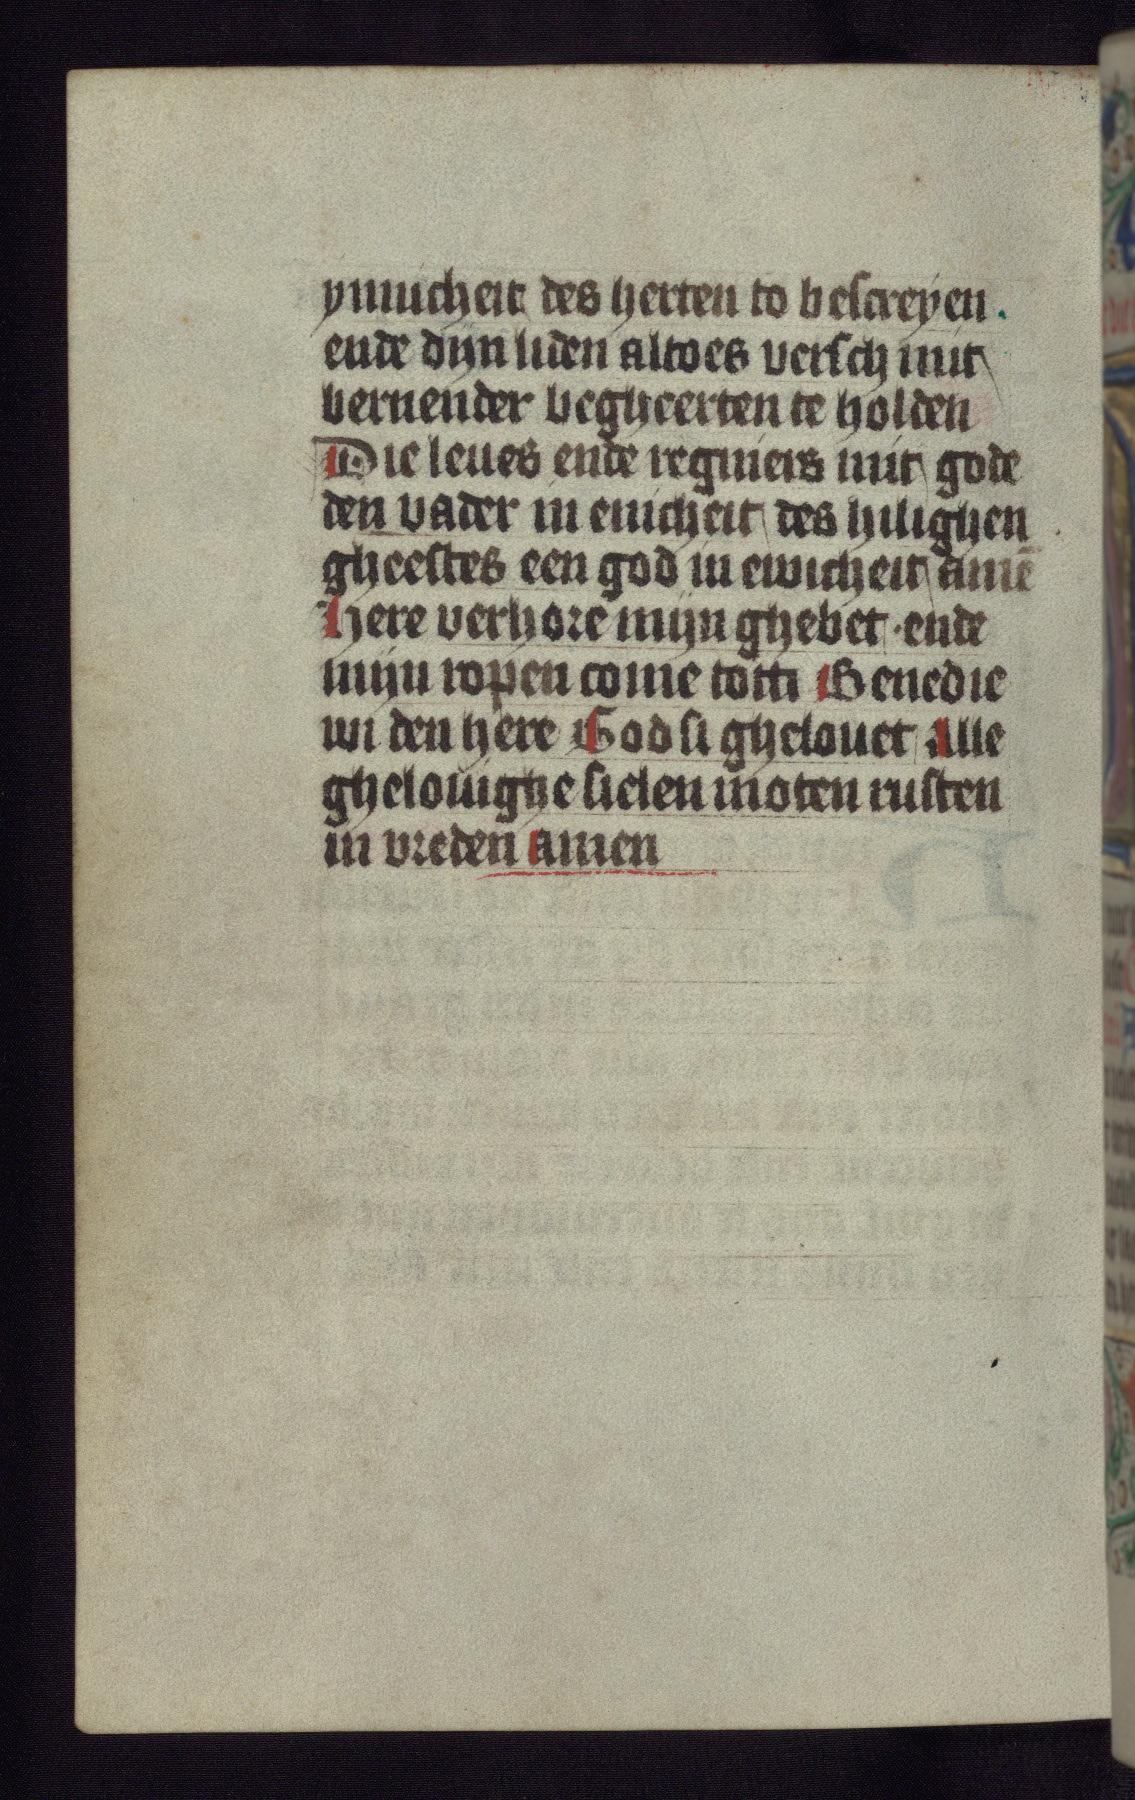 ynnicheit des herten to bescreyen.
ende dijn liden altoes versch mit
bernender begheerten te holden
Die leues ende regniers mit gode
den vader in enicheit des hilighen
gheestes een god in ewicheit amē
Here verhore mijn ghebet · ende
mijn ropen come totti Benedie
wi den here God si ghelouet Alle
ghelouighe sielen moten rusten
in vreden amen